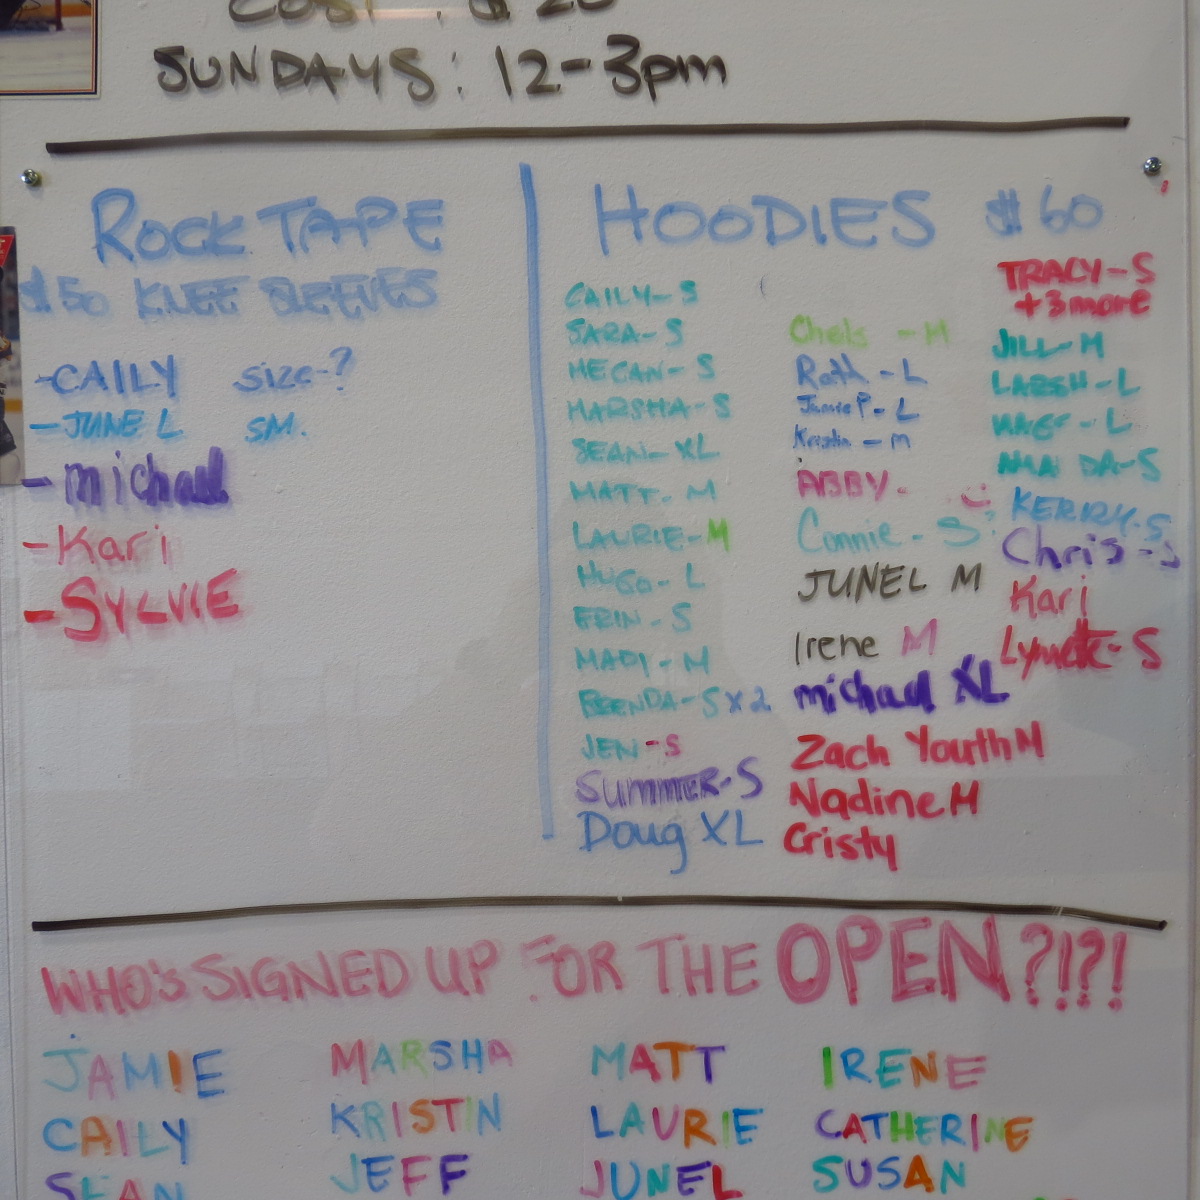 COST : $20
SUNDAYS: 12-3pm
ROCK TAPE
$50 KNEE SLEEVES
-CAILY size-?
-JUNEL SM.
-michael
-Kari
-SYLVIE
HOODIES $60
CAILY-S
SARA-S
MEGAN-S
MARSHA-S
SEAN-XL
MATT-M
LAURIE-M
HUGO-L
ERIN-S
MADI-M
BRENDA-S x2
JEN-S
Summer-S
Doug XL
Chels -M
-L
Jamie P.-L
Kristin -M
ABBY-
Connie-S
JUNEL M
Irene M
michael XL
Zach Youth M
Nadine M
Cristy
TRACY-S
+3 more
JILL-M
-L
-L
-S
KERRY-S
Chris-S
Kari
Lynette-S
WHO'S SIGNED UP FOR THE OPEN?!?!
JAMIE MARSHA MATT IRENE
CAILY KRISTIN LAURIE CATHERINE
SEAN JEFF JUNEL SUSAN